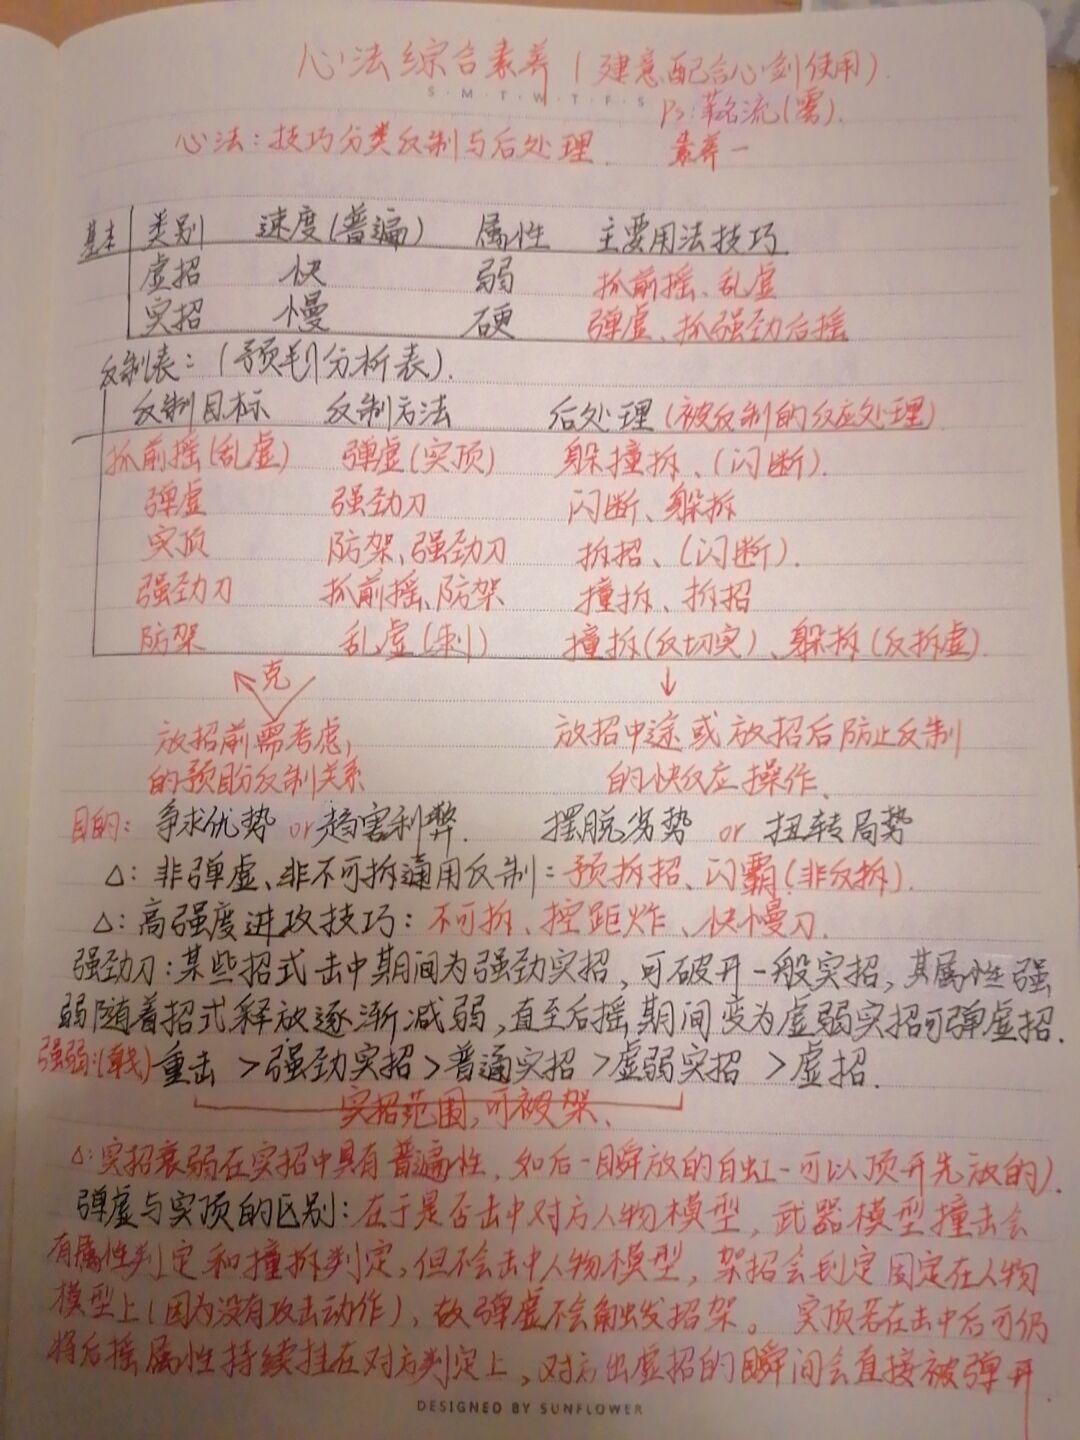 心法综合素养(建意配合心剑使用).
S·M·T·W·T·F·S
Ps:茗流(雲).
心法:技巧分类反制与后处理. 素养一
基本 类别 速度(普遍) 属性 主要用法技巧
虚招 快 弱 抓前摇、乱虚
实招 慢 硬 弹虚、抓强劲后摇
反制表:(预判分析表).
反制目标 反制方法 后处理(被反制的反应处理)
抓前摇(乱虚) 弹虚(实顶) 躲撞拆、(闪断).
弹虚 强劲刀 闪断、躲拆
实顶 防架、强劲刀 拆招、(闪断).
强劲刀 抓前摇、防架 撞拆、拆招
防架 乱虚(刺) 撞拆(反切实)、躲拆(反拆虚).
克
放招前需考虑, 放招中途或放招后防止反制
的预盼反制关系 的快反应操作.
目的: 争求优势 or 趋害利弊. 摆脱劣势 or 扭转局势
△:非弹虚、非不可拆通用反制=预拆招、闪霸(非反拆).
△:高强度进攻技巧:不可拆、控距炸、快慢刀.
强劲刀:某些招式击中期间为强劲实招,可破开一般实招,其属性强
弱随着招式释放逐渐减弱,直至后摇期间变为虚弱实招可弹虚招.
强弱:(戟)重击 >强劲实招>普通实招>虚弱实招 >虚招.
实招范围,可被架.
△:实招衰弱在实招中具有普遍性,如后一瞬放的白虹一可以顶开先放的).
弹虚与实顶的区别:在于是否击中对方人物模型,武器模型撞击会
有属性判定和撞拆判定,但不会击中人物模型,架招会判定固定在人物
模型上(因为没有攻击动作),故弹虚不会触发招架。实顶若在击中后可仍
将后摇属性持续挂在对方判定上,对方出虚招的瞬间会直接被弹开.
DESIGNED BY SUNFLOWER